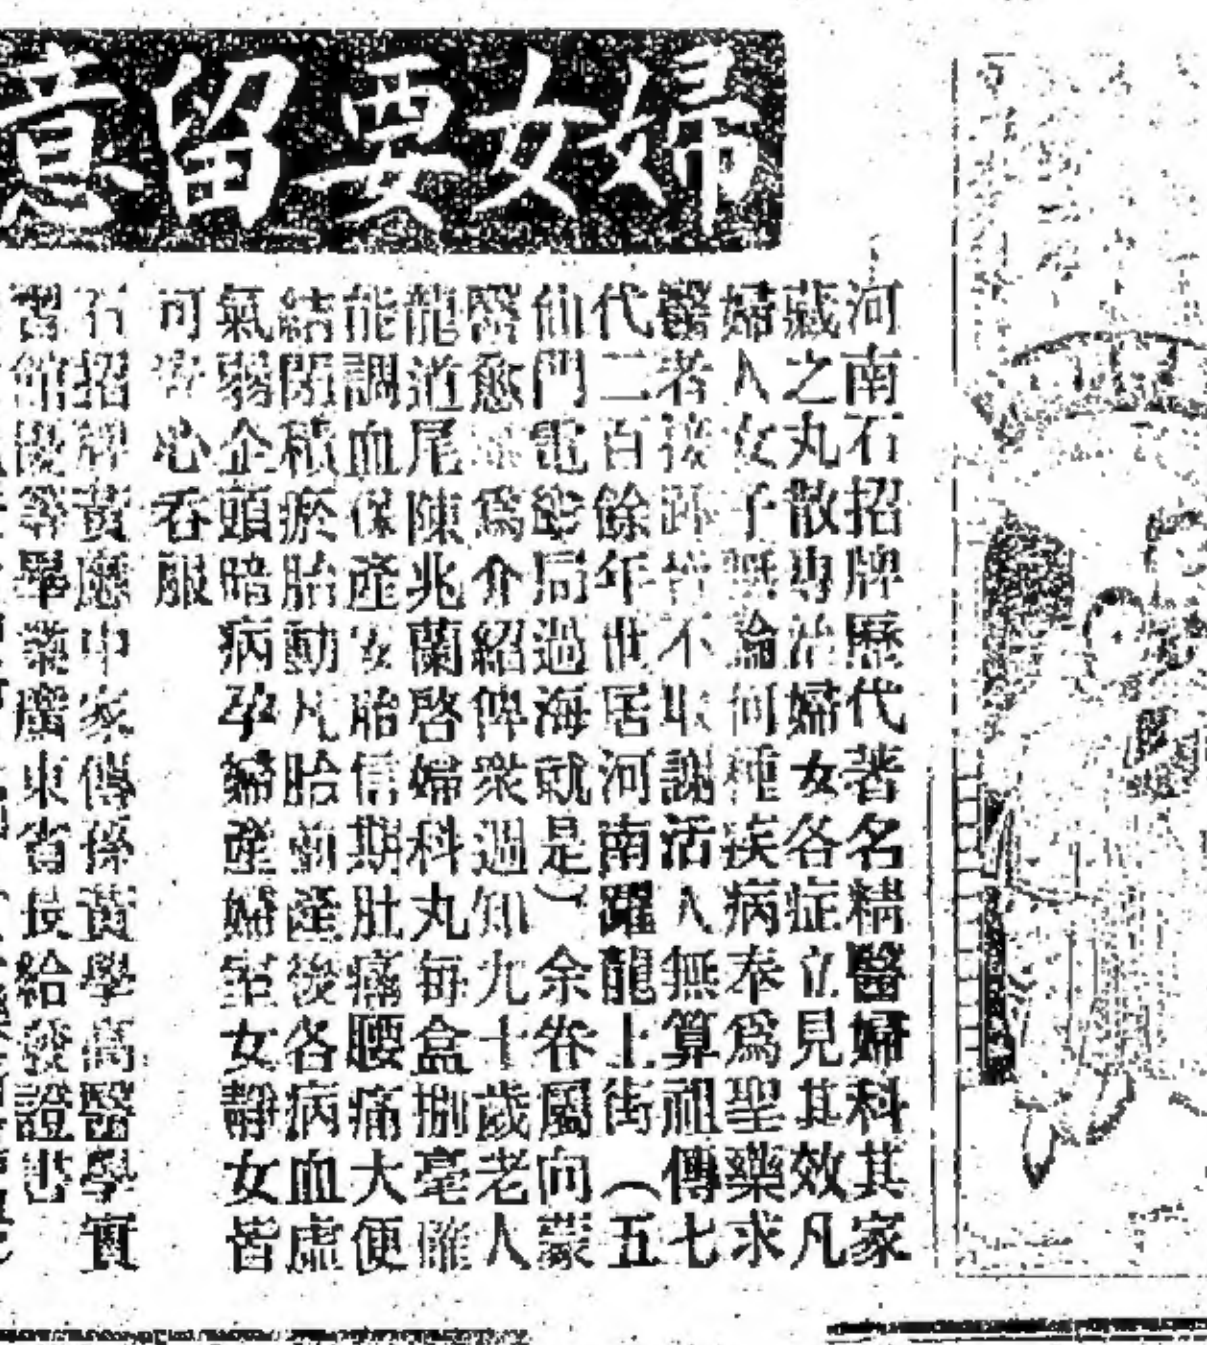 婦女要留意
河南石招牌歷代著名精醫婦科其家
藏之丸散專治婦女各症立見其效凡
婦人女子無論何種疾病奉為聖藥求
醫者接踵不取謝活人無算祖傳七
代二百餘年世居河南躍龍上街（五
仙門電船同過海就是）余眷屬向蒙
醫愈 為介紹俾衆週知九十歲老人
龍道尾陳兆蘭啓婦科丸每盒捌毫雖
能調血保產安胎信期肚痛腰痛大便
結閉積瘀胎動凡胎前產後各病血虛
氣弱企頭暗病孕婦產婦室女靜女皆
可安心吞服
石招牌黃應中家傳孫黃學高醫學實
習館 等畢業廣東省長給發證書